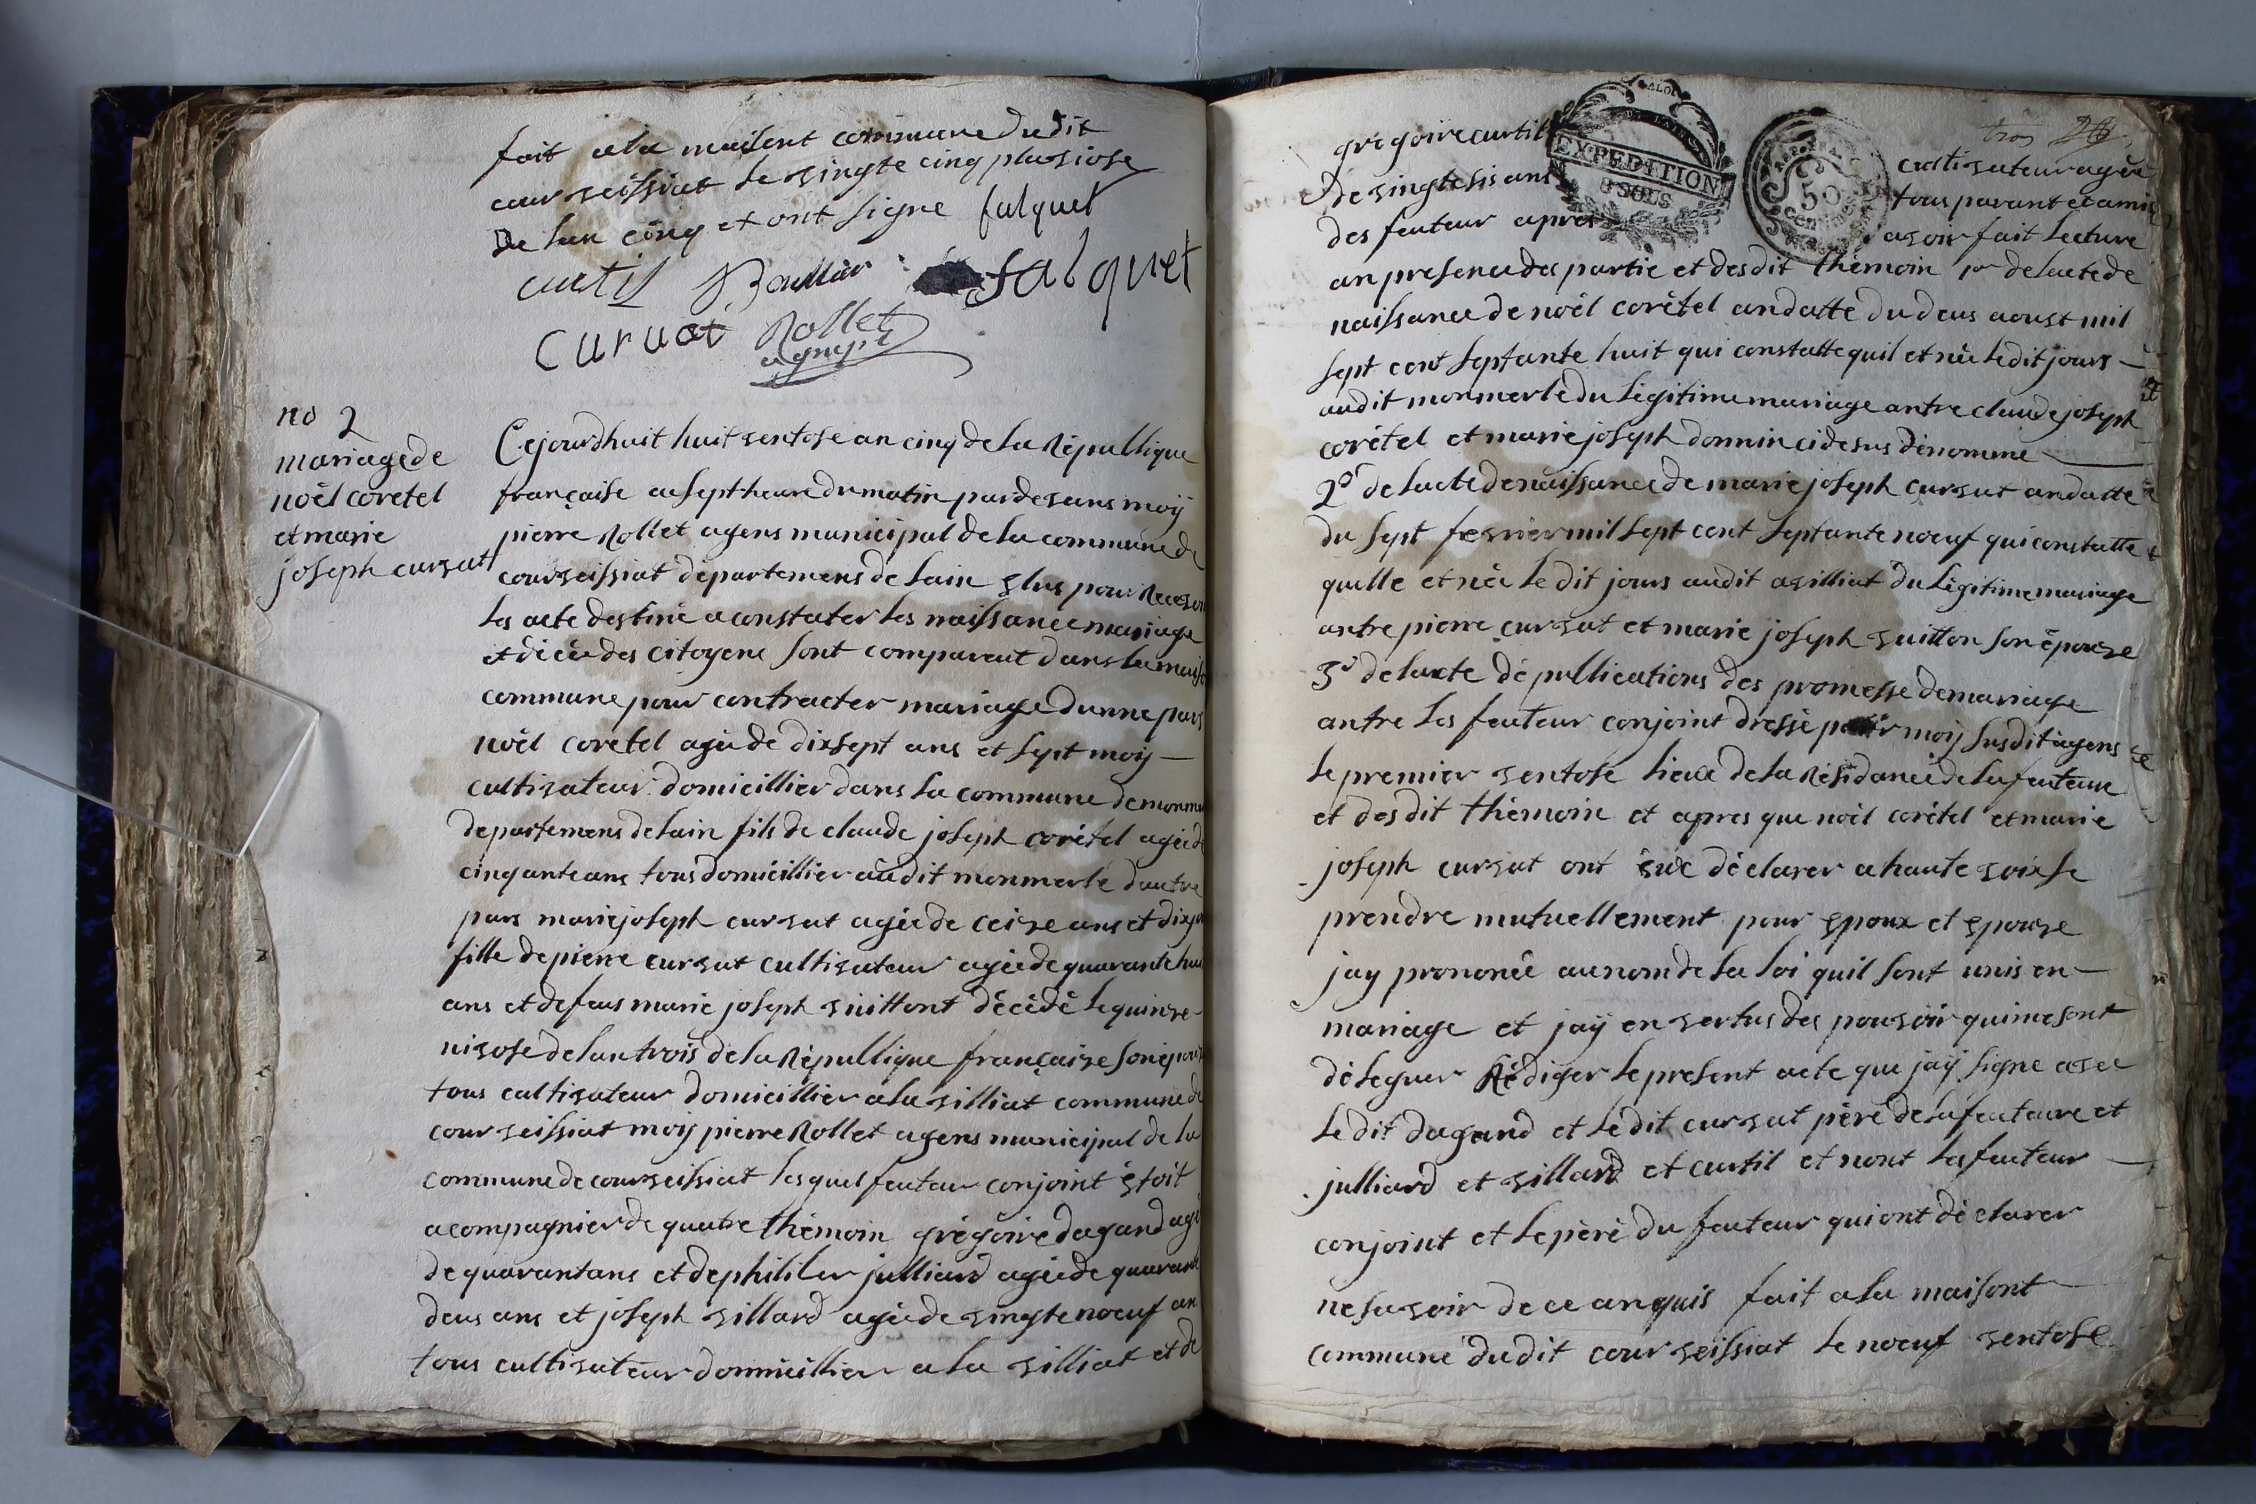 fait a la maisont commune dudit
courveissiat le vingte cinq pluviose
De lan cinq et ont signe falquet
curtil Boullier falquet
Curuat Rollet
agmpl
no 2
mariage de
noël coretel
et marie
joseph curvat
Cejourdhuit huit ventose an cinq de la Republique
française a sept heure du matin pardevans moy
pierre Rollet agens municipal de la commune de
courveissiat département de lain elus pour Recevoir
les acte destiné a constater les naissance mariage
et décée des citoyens sont comparent dans la maiso
commune pour contracter mariage dunne pars
noël coretel agée de dixsept ans et sept moy
cultivateur domicillier dans la commune de monme
departemens de lain fils de claude joseph corétel agée d
cinquante ans tous domicillier audit monmerle dautre
pars marie joseph curvat agée de ceize ans et dix jo
fille de pierre curvat cultivateur agée de quarante hui
ans et defeus marie joseph vuittont décédé le quinze
nivose de lan trois de la Republique française son epou
tous cultivateur domicillier a la villiat commune de
courveissiat moy pierre Rollet agens municipal de la
commune de courveissiat les quel feuteur conjoint étoit
acompagnier de quatre thémoin grégoire dagand agé
de quarantans et dephililer julliard agée de quarant
deus ans et joseph villard agée de vingte noeuf an
tous cultivateur domicillier a la villiat et de
gregoire curtil cultivateur agée
de vingte sis ans tous parant et ami
des feuteur apres avoir fait lecture
an presence des partie et desdit thémoin 1o de lacte de
naissance de noël corétel andatte du deus aoust mil
sept cent septante huit qui constatte quil et née ledit jours
audit monmerle du légitime mariage antre claude joseph
corétel et marie joseph donnin cidesus dénommé
2o de lacte de naissance de marie joseph curvat andatte
du sept fevrier mil sept cent septante noeuf qui constatte
quelle et née le dit jours audit avilliat du légitime mariage
antre pierre curvat et marie joseph vuitton son épouze
3o de lacte dé publications des promesse de mariage
antre les feuteur conjoint dressé par moy susdit agens
le premier ventose lieue de la Résidance de la feuteure
et desdit thémoin et apres que noël corétel et marie
joseph curvat ont éue déclarer a haute voix se
prendre mutuellement pour epoux et epouze
jay prononcé au nom de la loi quil sont unis en
mariage et jaÿ en vertus des pouvoir qui me sont
déleguer Rédiger le present acte que jaÿ signe avec
le dit dagand et le dit curvat père de la feuteure et
julliard et villard et curtil et nont les feuteur
conjoint et le père du feuteur qui ont déclarer
ne savoir de ce anquis fait a la maisont
commune dudit courveissiat le noeuf ventose
EXPEDITION
9 SOLS
REP. FRA.
50
CENTIMES